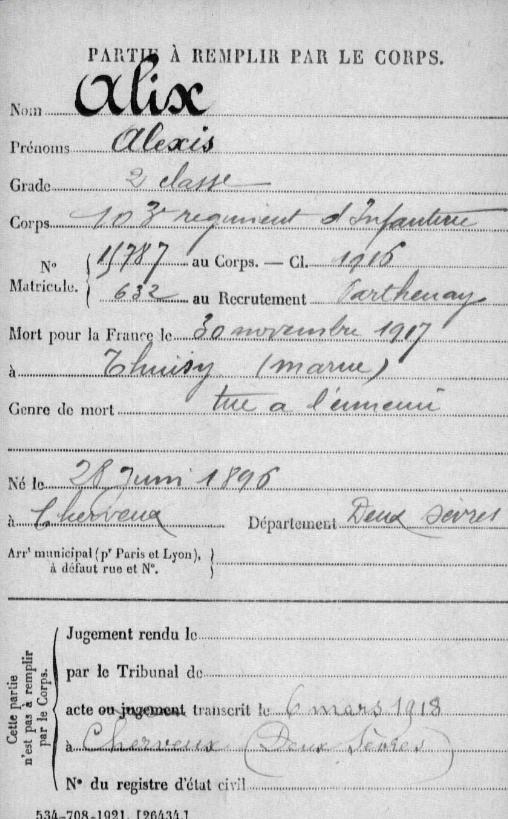 PARTIE À REMPLIR PAR LE CORPS.
Nom Alix
Prénoms Alexis
Grade 2 classe
Corps 103e regiment d'Infanterie
N° Matricule. 11787 au Corps. — Cl. 1916
632 au Recrutement Parthenay
Mort pour la France le 30 novembre 1917
à Thuisy (marne)
Genre de mort tue a l'ennemi
Né le 28 Juin 1896
à Cherveux Département Deux Sèvres
Arrt municipal (pr Paris et Lyon),
à défaut rue et N°.
Cette partie n'est pas à remplir par le Corps.
Jugement rendu le
par le Tribunal de
acte ou jugement transcrit le 6 mars 1918
à Cherveux (Deux Sèvres)
N° du registre d'état civil
534-708-1921. [26434.]